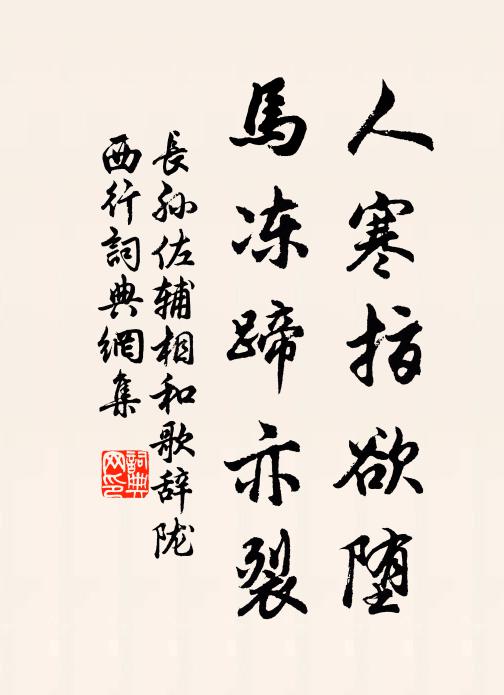 人寒指欲堕
馬冻蹄亦裂
長孙佐辅相和歌辞陇
西行詞典網集
詞典
网印